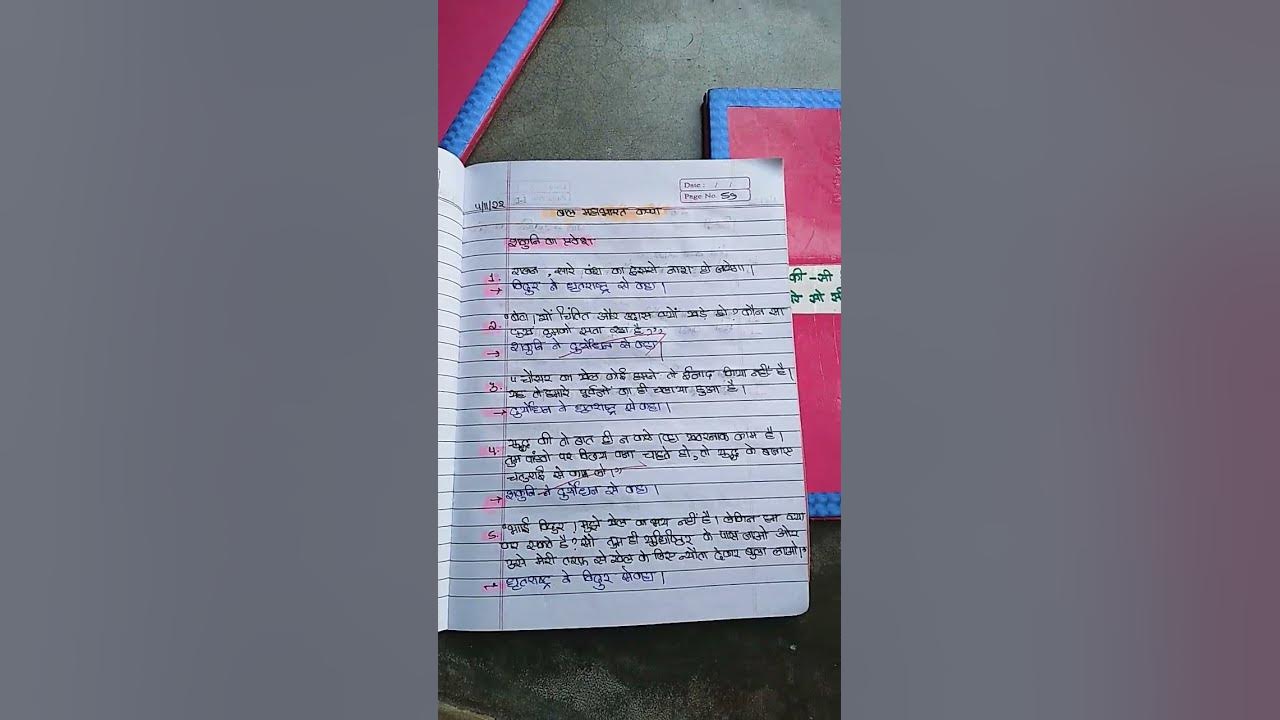 Date : / /
Page No. 59
4/11/22
बाल महाभारत कथा
शकुनि का प्रवेश
1. राजन, सारे वंश का इससे नाश हो जायेगा।
→ विदुर ने धृतराष्ट्र से कहा।
2. "बेटा! यों चिंतित और उदास क्यों खड़े हो? कौन सा
दुःख तुमको सता रहा है?"
→ शकुनि ने दुर्योधन से कहा।
3. "चौसर का खेल कोई हमने तो ईजाद किया नहीं है।
यह तो हमारे पूर्वजों का ही चलाया हुआ है।
→ दुर्योधन ने धृतराष्ट्र से कहा।
4. युद्ध की तो बात ही न करो। वह खतरनाक काम है।
तुम पांडवों पर विजय पाना चाहते हो, तो युद्ध के बजाय
चतुराई से काम लो।"
→ शकुनि ने दुर्योधन से कहा।
5. "भाई विदुर! मुझे खेल का भय नहीं है। लेकिन हम क्या
कर सकते है? सो तुम ही युधिष्ठिर के पास जाओ और
उसे मेरी तरफ से खेल के लिए न्यौता देकर बुला लाओ।"
→ धृतराष्ट्र ने विदुर से कहा।
की - भी